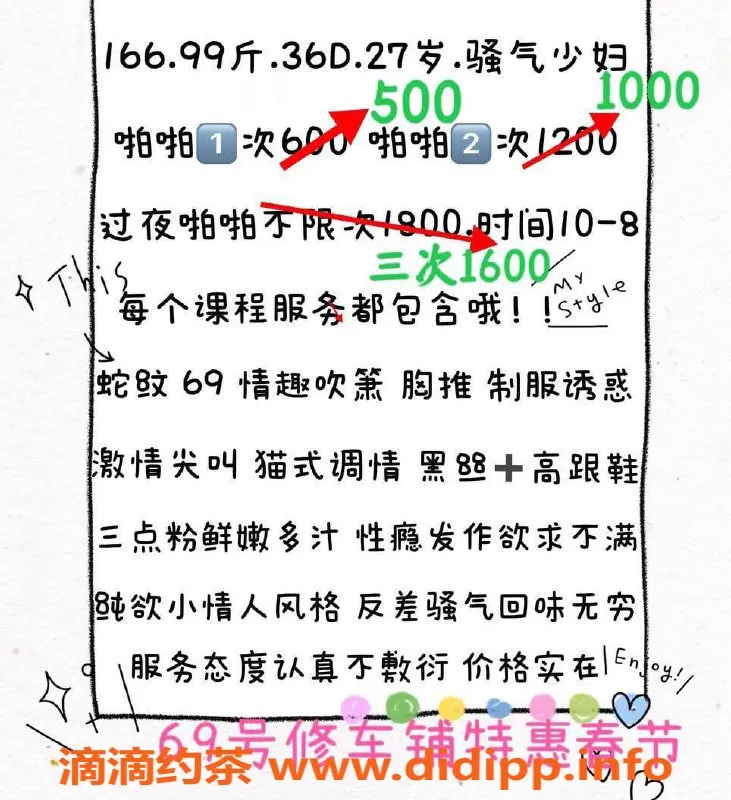 166.99斤.36D.27岁.骚气少妇
500 1000
啪啪1️⃣次600 啪啪2️⃣次1200
过夜啪啪不限次1800.时间10-8
三次1600
This
My Style
每个课程服务都包含哦！！
蛇纹 69 情趣吹箫 胸推 制服诱惑
激情尖叫 猫式调情 黑丝➕高跟鞋
三点粉鲜嫩多汁 性瘾发作欲求不满
纯欲小情人风格 反差骚气回味无穷
服务态度认真不敷衍 价格实在
Enjoy!
69号修车铺特惠春节
滴滴约茶 www.didipp.info